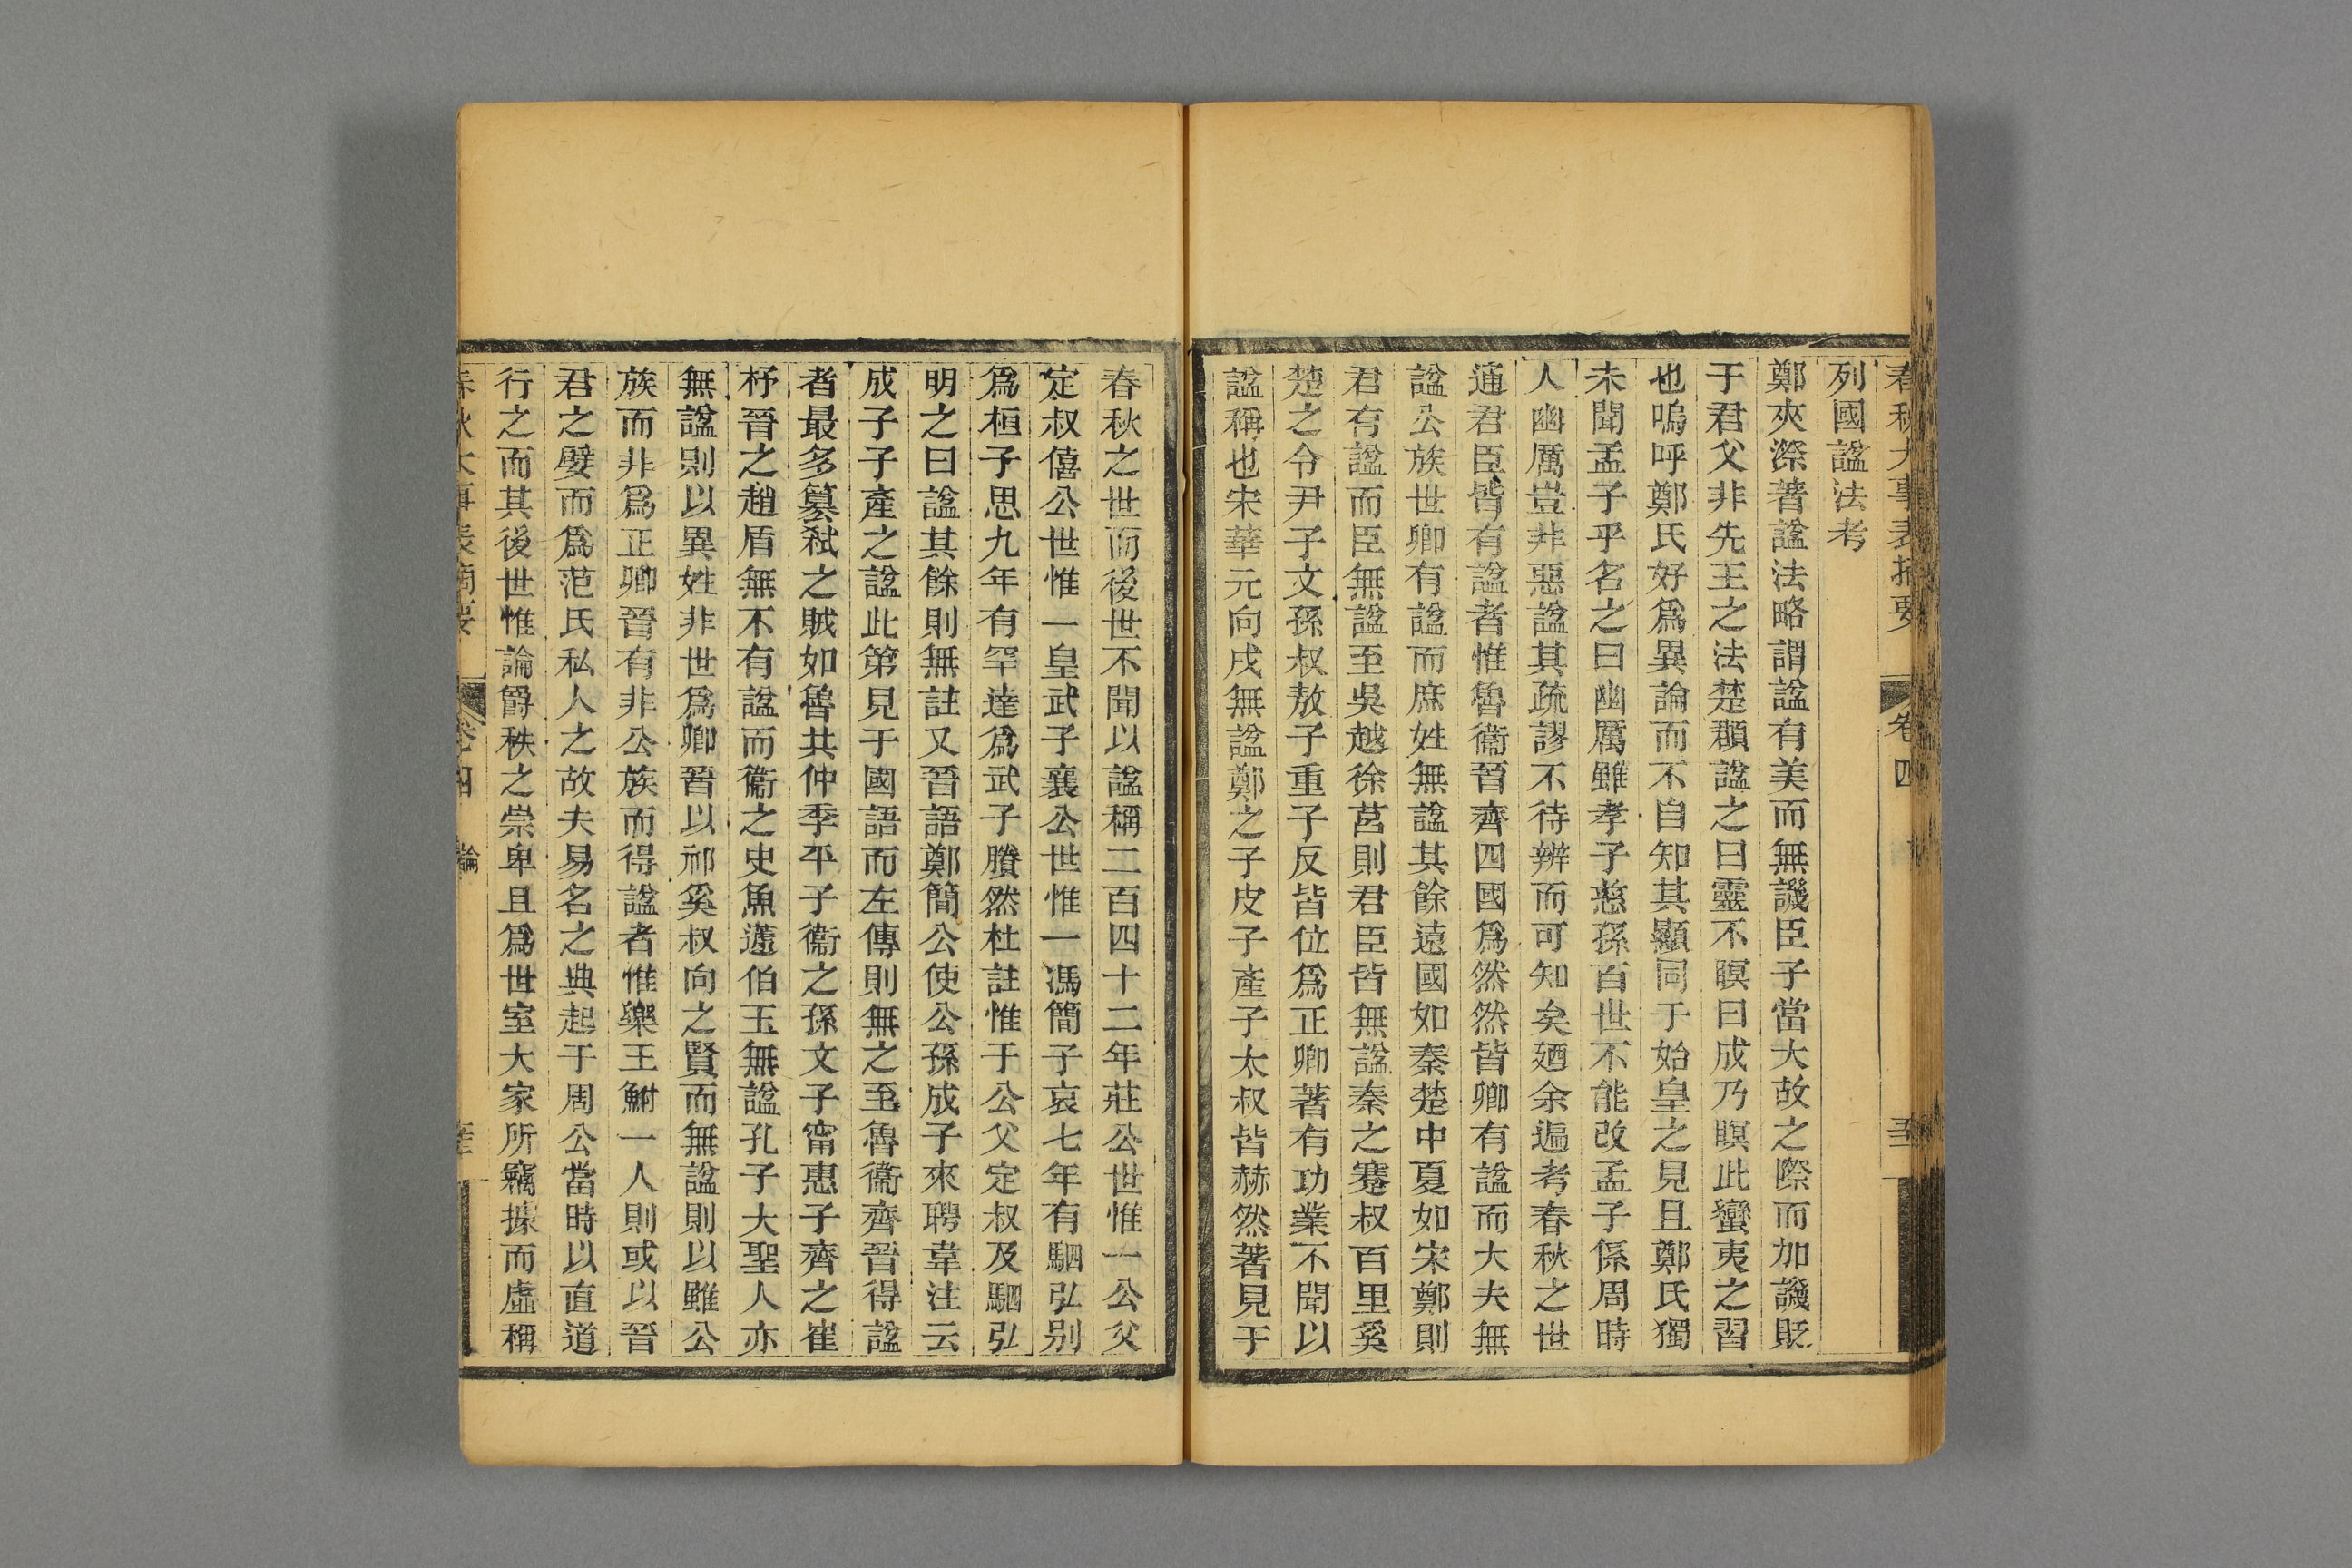 春秋大事表摘要 卷四
列國諡法考
鄭夾漈著諡法略謂諡有美而無譏臣子當大故之際而加譏貶
于君父非先王之法楚頵諡之曰靈不瞑曰成乃瞑此蠻夷之習
也嗚呼鄭氏好爲異論而不自知其顯同于始皇之見且鄭氏獨
未聞孟子乎名之曰幽厲雖孝子慈孫百世不能改孟子係周時
人幽厲豈非惡諡其疏謬不待辨而可知矣廼余遍考春秋之世
通君臣皆有諡者惟魯衞晉齊四國爲然然皆卿有諡而大夫無
諡公族世卿有諡而庶姓無諡其餘遠國如秦楚中夏如宋鄭則
君有諡而臣無諡至吳越徐莒則君臣皆無諡秦之蹇叔百里奚
楚之令尹子文孫叔敖子重子反皆位爲正卿著有功業不聞以
諡稱也宋華元向戌無諡鄭之子皮子產子太叔皆赫然著見于
春秋之世而後世不聞以諡稱二百四十二年莊公世惟一公父
定叔僖公世惟一皇武子襄公世惟一馮簡子哀七年有駟弘別
爲桓子思九年有罕達爲武子賸然杜註惟于公父定叔及駟弘
明之曰諡其餘則無註又晉語鄭簡公使公孫成子來聘韋注云
成子子產之諡此第見于國語而左傳則無之至魯衞齊晉得諡
者最多篡弒之賊如魯共仲季平子衞之孫文子甯惠子齊之崔
杼晉之趙盾無不有諡而衞之史魚蘧伯玉無諡孔子大聖人亦
無諡則以異姓非世爲卿晉以祁奚叔向之賢而無諡則以雖公
族而非爲正卿晉有非公族而得諡者惟樂王鮒一人則或以晉
君之嬖而爲范氏私人之故夫易名之典起于周公當時以直道
行之而其後世惟論爵秩之崇卑且爲世室大家所竊據而虛稱
春秋大事表摘要 卷四 論